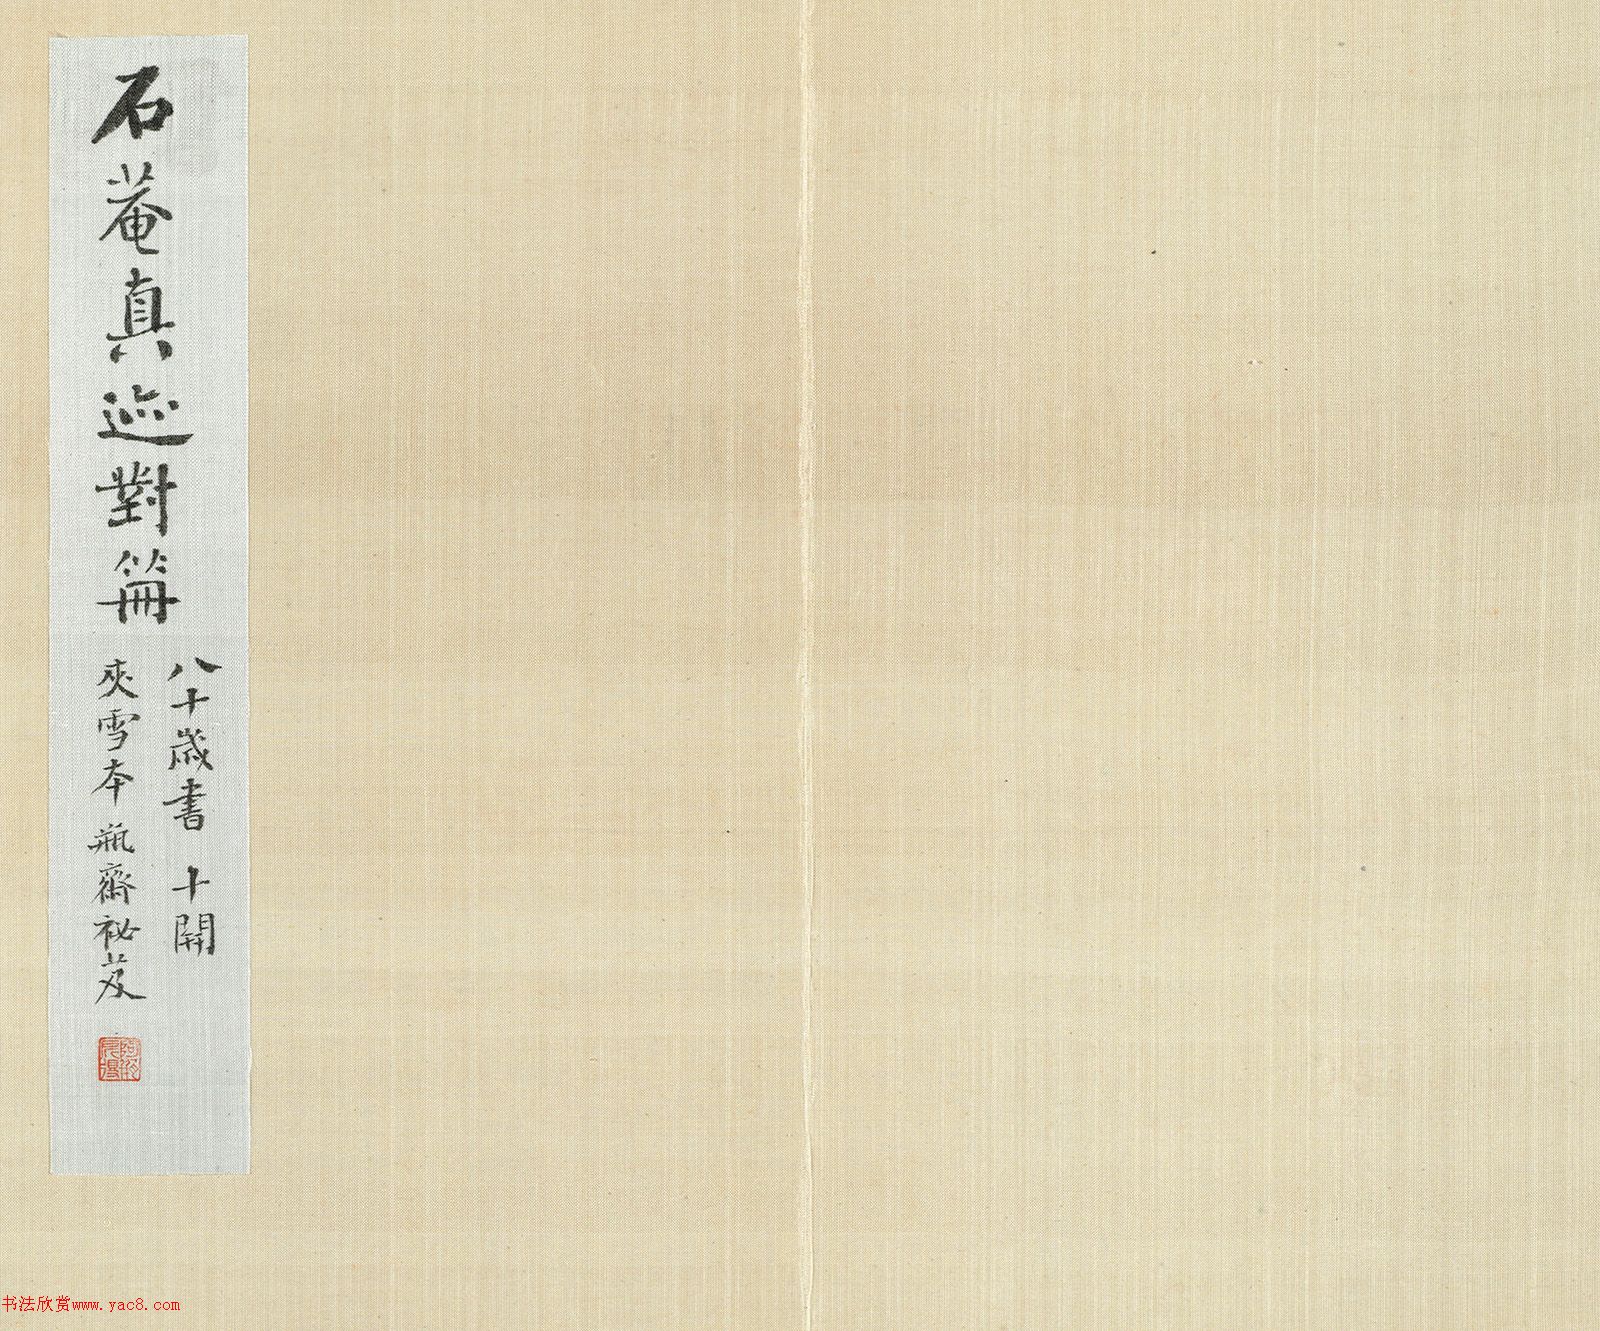 石菴真迹對篇
八十歲書 十開
夾雪本 瓶齋祕笈
书法欣赏www.yac8.com